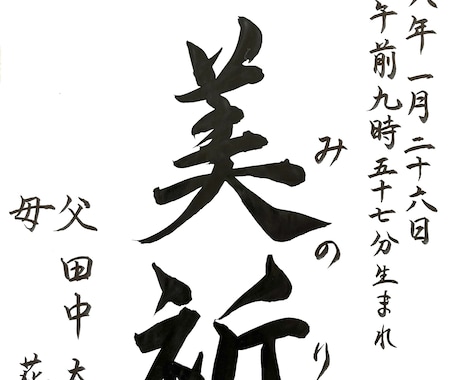 年一月二十六日
午前九時五十七分生まれ
みのり
美祈
父 田中
母 花